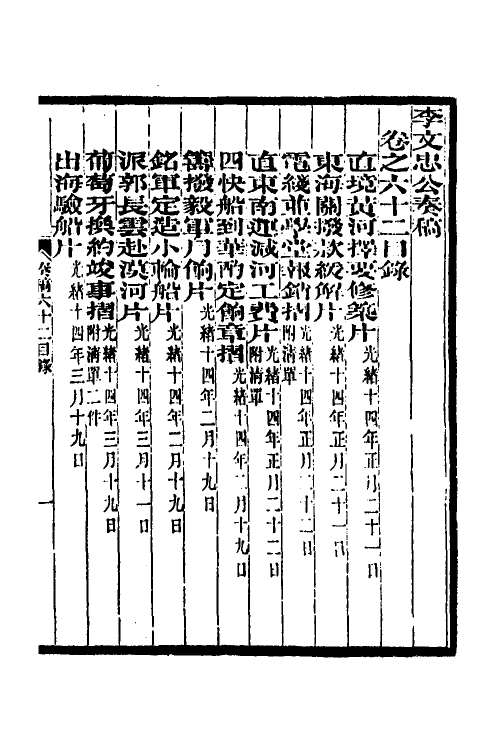 李文忠公奏稿
卷之六十二目錄
直境黃河擇要修築片 光緒十四年正月二十一日
東海關撥款緩解片 光緒十四年正月二十一日
電綫並學堂報銷摺 附清單 光緒十四年正月二十二日
直東南運減河工費片 附清單 光緒十四年正月二十二日
四快船到華酌定餉章摺 光緒十四年二月十九日
籌撥毅軍月餉片 光緒十四年二月十九日
銘軍定造小輪船片 光緒十四年二月十九日
派郭長雲赴漠河片 光緒十四年三月十一日
葡萄牙換約竣事摺 附清單二件 光緒十四年三月十九日
出海驗船片 光緒十四年三月十九日
奏稿六十二目錄
一